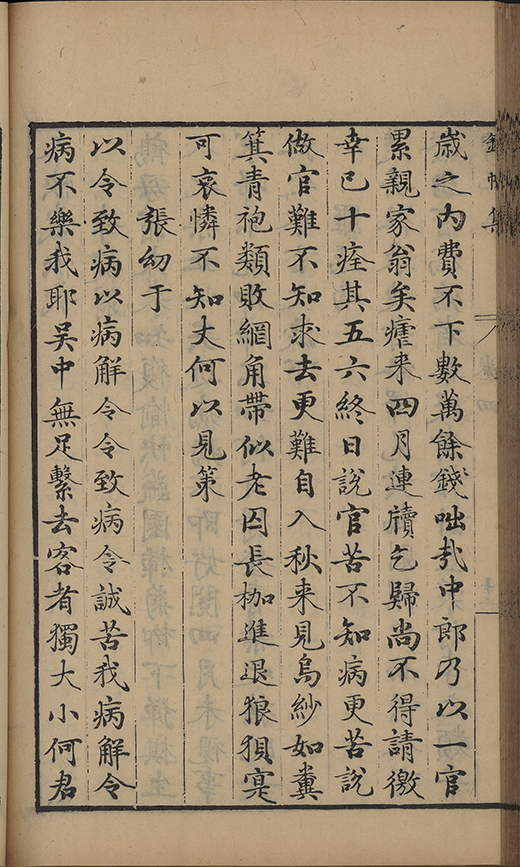 錦帆集
歳之内費不下數萬餘錢咄哉中郎乃以一官
累親家翁矣瘧来四月連牘乞歸尚不得請徼
幸已十痊其五六終日說官苦不知病更苦說
做官難不知求去更難自入秋来見烏紗如糞
箕青袍類敗網角帶似老囚長枷進退狼狽寔
可哀憐不知丈何以見第
張幼于
以令致病以病解令令致病令誠苦我病解令
病不樂我耶吳中無足繫去客者獨大小何君